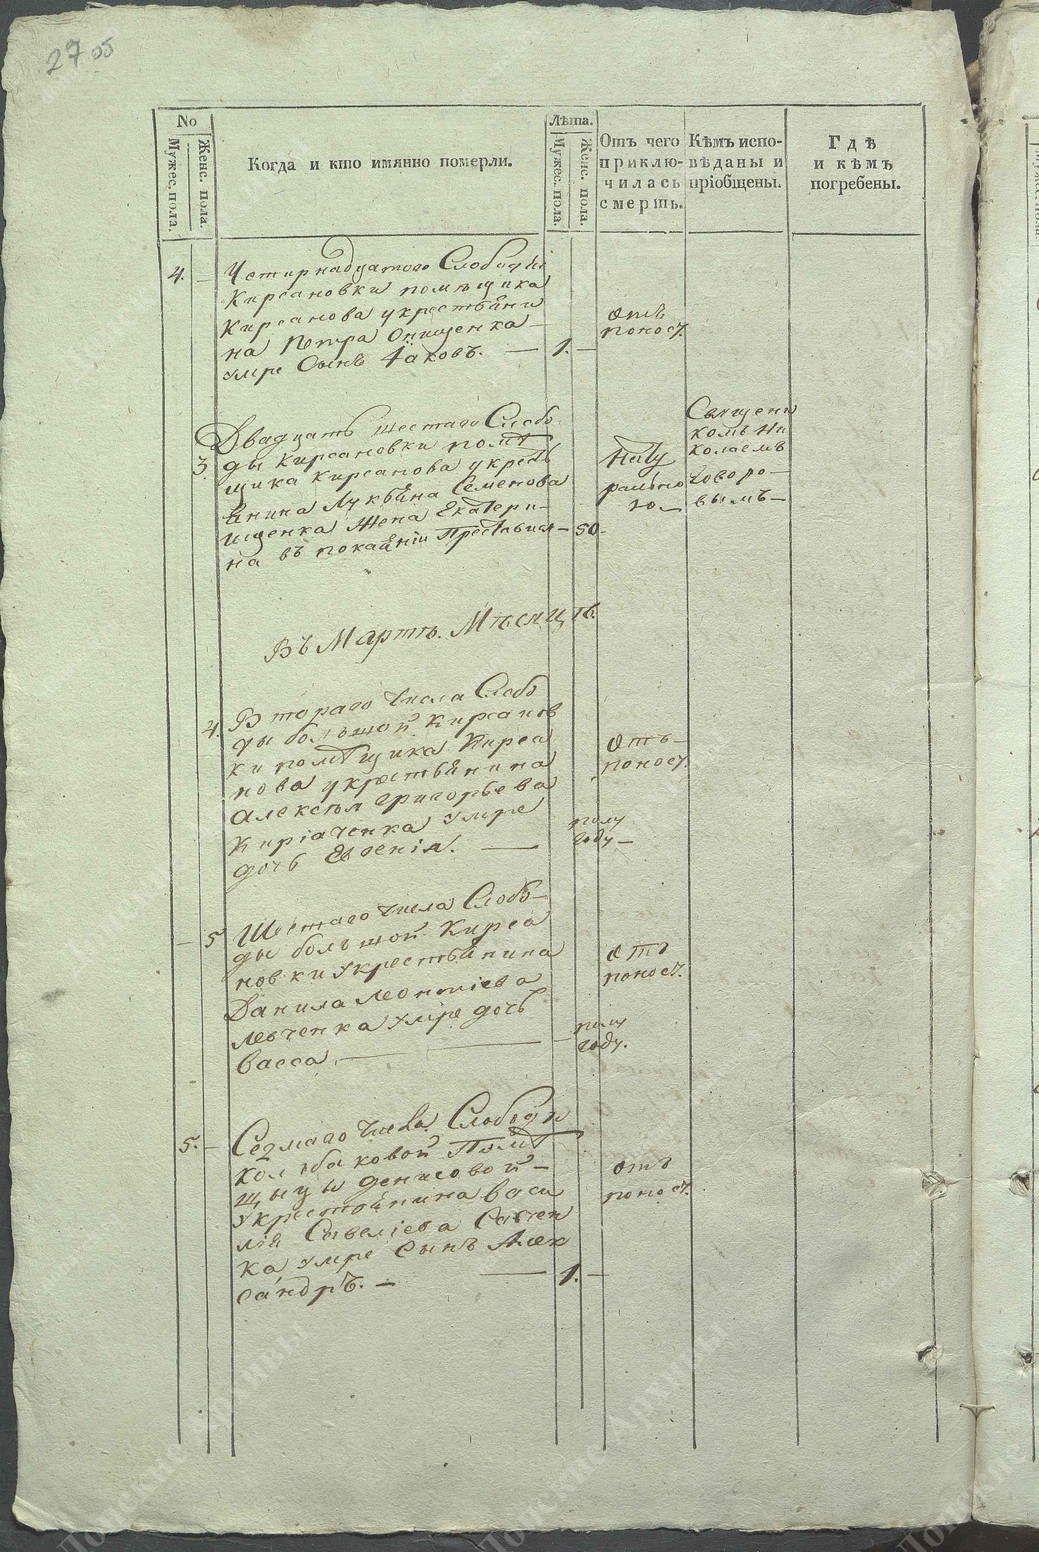 27 об
No
Мужес. пола.
Женс. пола.
Когда и кто имянно померли.
Лѣта.
Мужес. пола.
Женс. пола.
Отъ чего
приклю-
чилась
смерть.
Кѣмъ испо-
вѣданы и
пріобщены.
Гдѣ
и кѣмъ
погребены.
4. —
Четирнадцатого Слободки
Кирсановки помѣщика
Кирсанова у крестьяни
на Петра Онищенка —
умре Сынъ Іаковъ. — 1. —
отъ
поносу.
3.
Двадцать шестаго Слобо
ды Кирсановки помѣ
щика Кирсанова у кресть
янина Лукьяна Семенова
ищенка жена Екатери-
на въ покаяніи Преставися — 50 -
Нату
рально
ю —
Священи
комъ Ни
колаемъ
Говоро —
вымъ —
Въ Мартѣ. Мѣсяцѣ.
4.
Втораго числа Слобо
ды большой Кирсанов
ки помѣщика Кирса
нова у крестьянина
Алексѣя Григорьева
Киріаченка умре
дочь Евгенія. —
полу
году —
отъ —
поносу.
— 5
Шестаго числа Слобо-
ды большой Кирса
новки у крестьянина
Данила Леонтіева
Левченка умре дочь
Васса — —
полу
году.
отъ
поносу.
5. —
Седмаго числа Слободи
Колѣбаковой Помѣ
щыцы Денисовой —
у крестьянина Васи
лія Савеліева Савчен
ка умре Сынъ Алек
сандръ. — — 1. —
отъ
поносу.
Донские Архивы